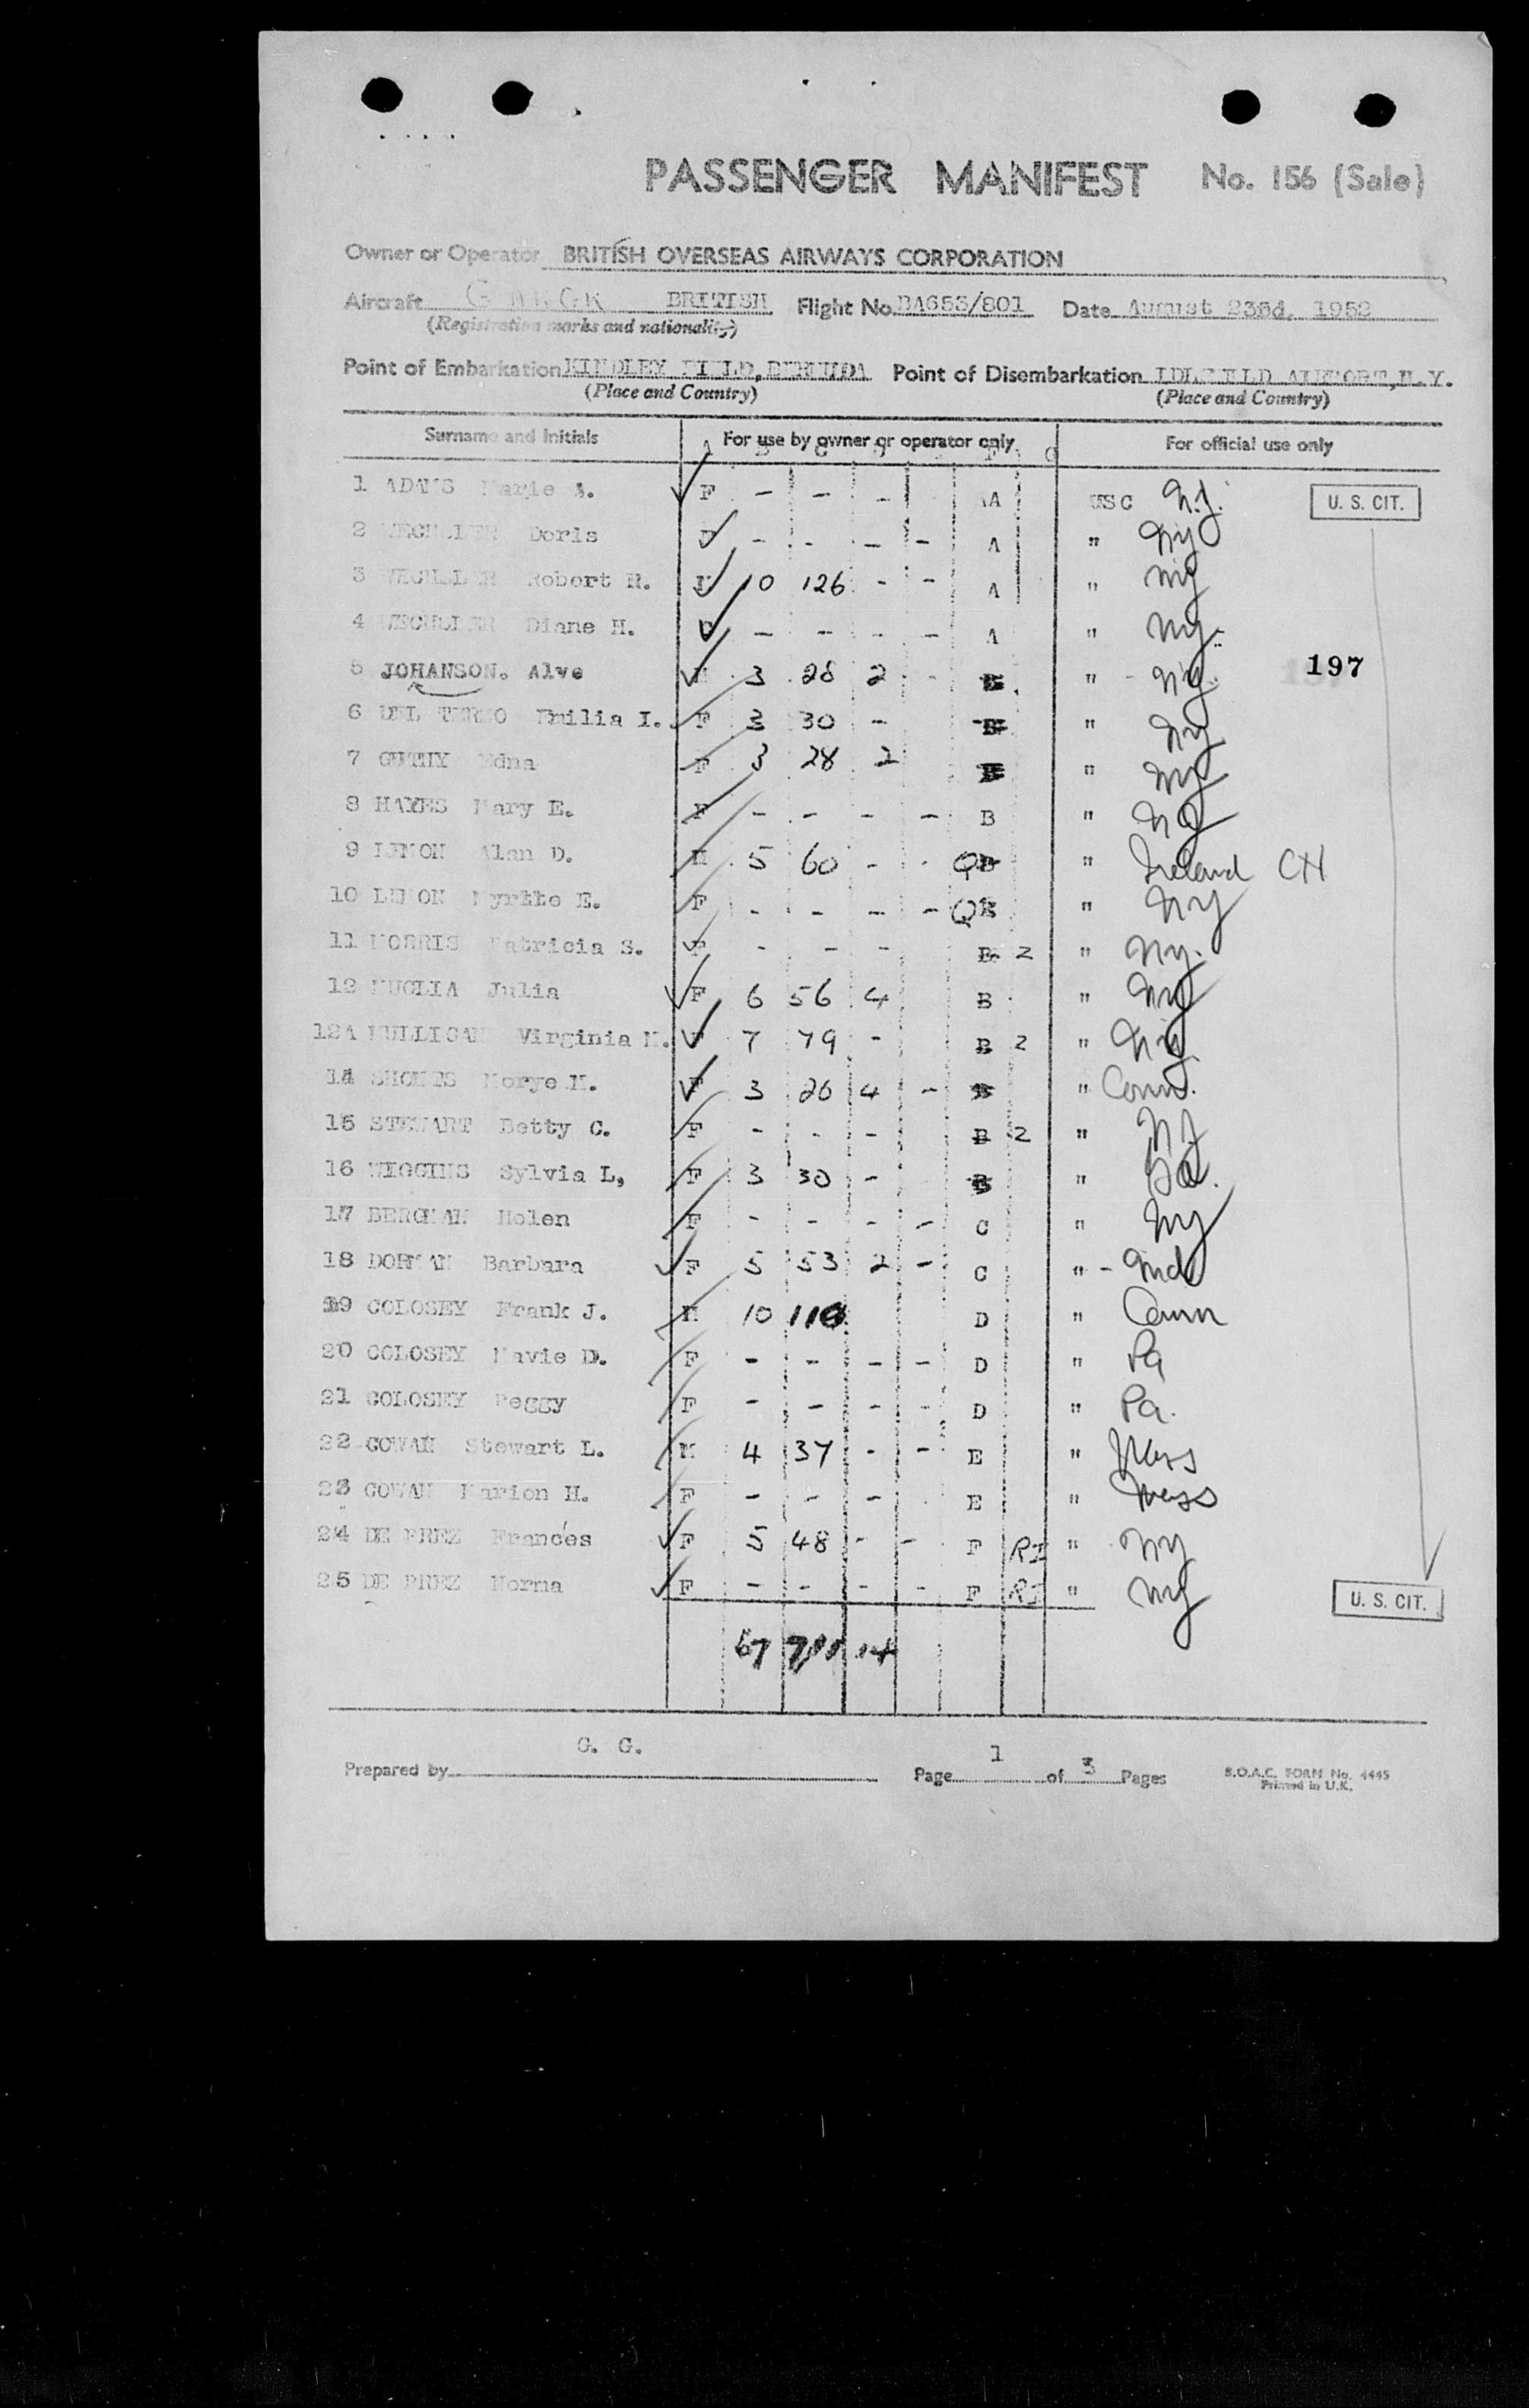 PASSENGER MANIFEST No. 156 (Sale)
Owner or Operator BRITISH OVERSEAS AIRWAYS CORPORATION
Aircraft BRITISH Flight No. BA653/801 Date August 23rd, 1952
(Registration marks and nationality)
Point of Embarkation KINDLEY FIELD, BERMUDA Point of Disembarkation IDLEWILD AIRPORT, N.Y.
(Place and Country) (Place and Country)
Surname and Initials For use by owner or operator only For official use only
1 ADAMS Marie A. F - - - A USC N.J. U. S. CIT.
2 Doris - - - - A " NY
3 Robert R. 10 126 - - A " NY
4 Diane H. - - - - A " NY.
5 JOHANSON. Alve 3 28 2 - B " - NY. 197
6 DEL Emilia I. F 3 30 - B " NY
7 GUTHY Edna F 3 28 2 B " NY
8 HAYES Mary E. F - - - - B "
9 LEMON Alan D. M 5 60 - - " Ireland CH
10 LEMON E. F - - - - " NY
11 MORRIS Patricia S. F - - - B 2 " NY.
12 MUGLIA Julia F 6 56 4 B " NY
12A MULLIGAN Virginia M. F 7 79 - B 2 "
14 M. F 3 26 4 - B " Conn.
15 STEWART Betty C. F - - - B 2 " NJ
16 WIGGINS Sylvia L, F 3 30 - B "
17 BERGMAN Helen F - - - - C " NY
18 DORMAN Barbara F 5 53 2 - C " -
19 COLOSEY Frank J. M 10 110 D " Conn
20 COLOSEY Mavie D. F - - - - D " Pa
21 COLOSEY Peggy F - - - - D " Pa.
22 COWAN Stewart L. M 4 37 - - E " Mass
23 COWAN Marion H. F - - - E " Mass
24 DE PREZ Frances F 5 48 - - F RI " NY
25 DE PREZ Norma F - - - - F RI " NY U. S. CIT.
67 711 14
G. G.
Prepared by Page 1 of 3 Pages B.O.A.C. FORM No. 4445
Printed in U.K.